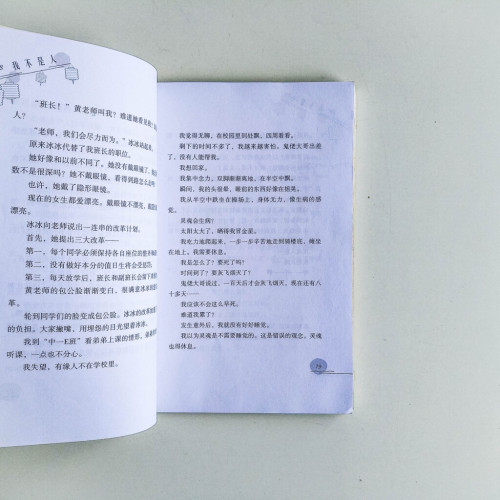 我不是人
“班长！”黄老师叫我？难道她看见我？我
人？
“老师，我们会尽力而为。”冰冰站起来
原来冰冰代替了我班长的职位。
她好像和以前不同了。她没有戴眼镜了，
数不是很深吗？她不戴眼镜，看得到路怎么走
也许，她戴了隐形眼镜。
现在的女生都爱漂亮。戴眼镜不漂亮，
漂亮。
冰冰向老师说出一连串的改革计划。
首先，她提出三大改革——
第一，每个同学必须保持各自座位的整齐
第二，没有做好本分的值日生将会受惩罚
第三，每天放学后，班长和副班长会留下
黄老师的包公脸渐渐变白，很满意冰冰的
革。
轮到同学们的脸变成包公脸。冰冰的改革
的负担。大家撇嘴，用埋怨的目光望着冰冰。
我到“中一E班”看弟弟上课的情形。
听课，一点也不分心。
我失望，有缘人不在学校里。
我觉得无聊，在校园里到处飘，四周看看。
剩下的时间不多了，我越来越害怕。鬼佬大哥出差
了，没有人能帮我。
我想回家。
我集中念力，双脚渐渐离地，在半空中飘。
瞬间，我的头很晕，眼前的东西好像在搭莺。
我从半空中跌坐在操场上，身体无力，像生病的感
觉。
灵魂会生病？
太阳太大了，晒得我冒金星。
我吃力地爬起来，一步一步辛苦地走到骑楼底，睡坐
在地上。我需要休息。
我是怎么了？要死了吗？
时间到了？要灰飞烟灭了？
鬼佬大哥说过，一百天后才会灰飞烟灭，现在还有八
十多天——
我应该不会这么早死。
难道我累了？
发生意外后，我就没有好好睡觉。
我以为灵魂是不需要睡觉的。这是错误的观念，灵魂
也得休息。